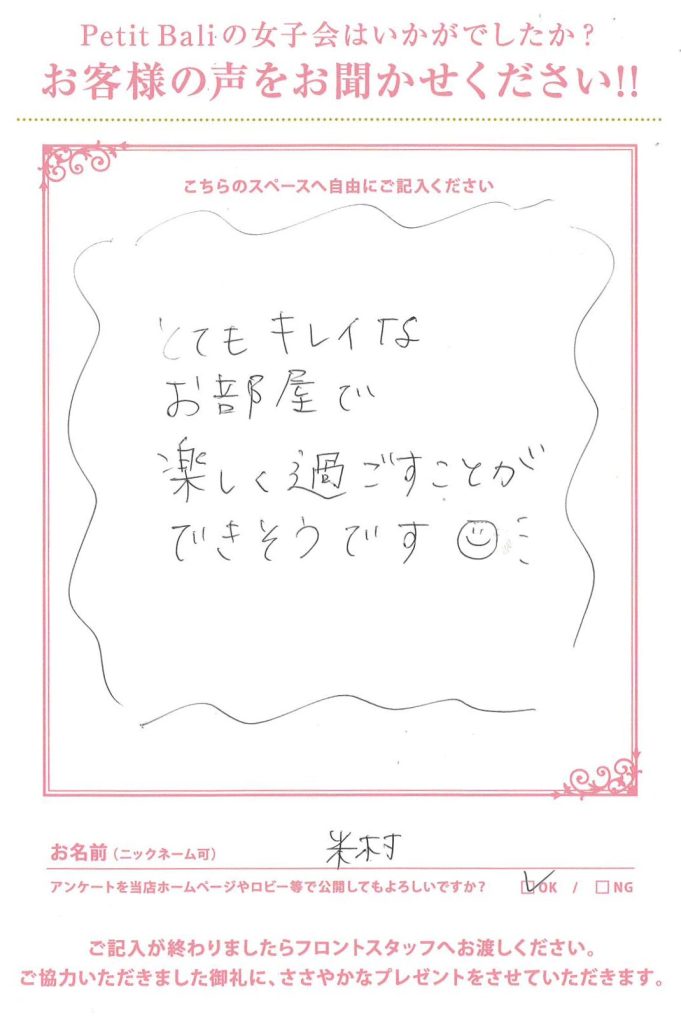 Petit Baliの女子会はいかがでしたか？
お客様の声をお聞かせください!!
こちらのスペースへ自由にご記入ください
とてもキレイな
お部屋で
楽しく過ごすことが
できそうです
お名前（ニックネーム可） 米村
アンケートを当店ホームページやロビー等で公開してもよろしいですか？ ☑OK / □NG
ご記入が終わりましたらフロントスタッフへお渡しください。
ご協力いただきました御礼に、ささやかなプレゼントをさせていただきます。